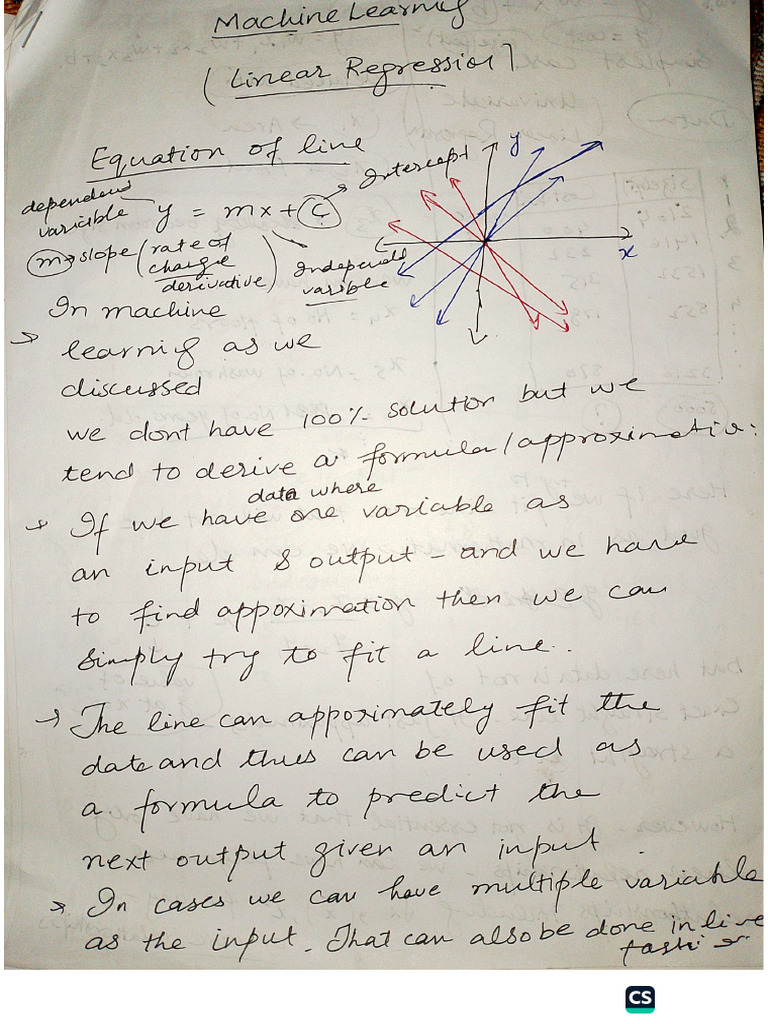 Machine Learning
(Linear Regression)
Equation of line
dependent
variable
y = mx + C
Intercept
m → slope (rate of
change
derivative)
Independent
varible
y
x
In machine
→ learning as we
discussed
we dont have 100% solution but we
tend to derive a formula/approximation:
data where
→ If we have one variable as
an input & output - and we have
to find appoximation then we can
simply try to fit a line.
→ The line can apporimately fit the
date and thus can be used as
a formula to predict the
next output given an input.
→ In cases we can have multiple variable
as the input. That can also be done in live
CS